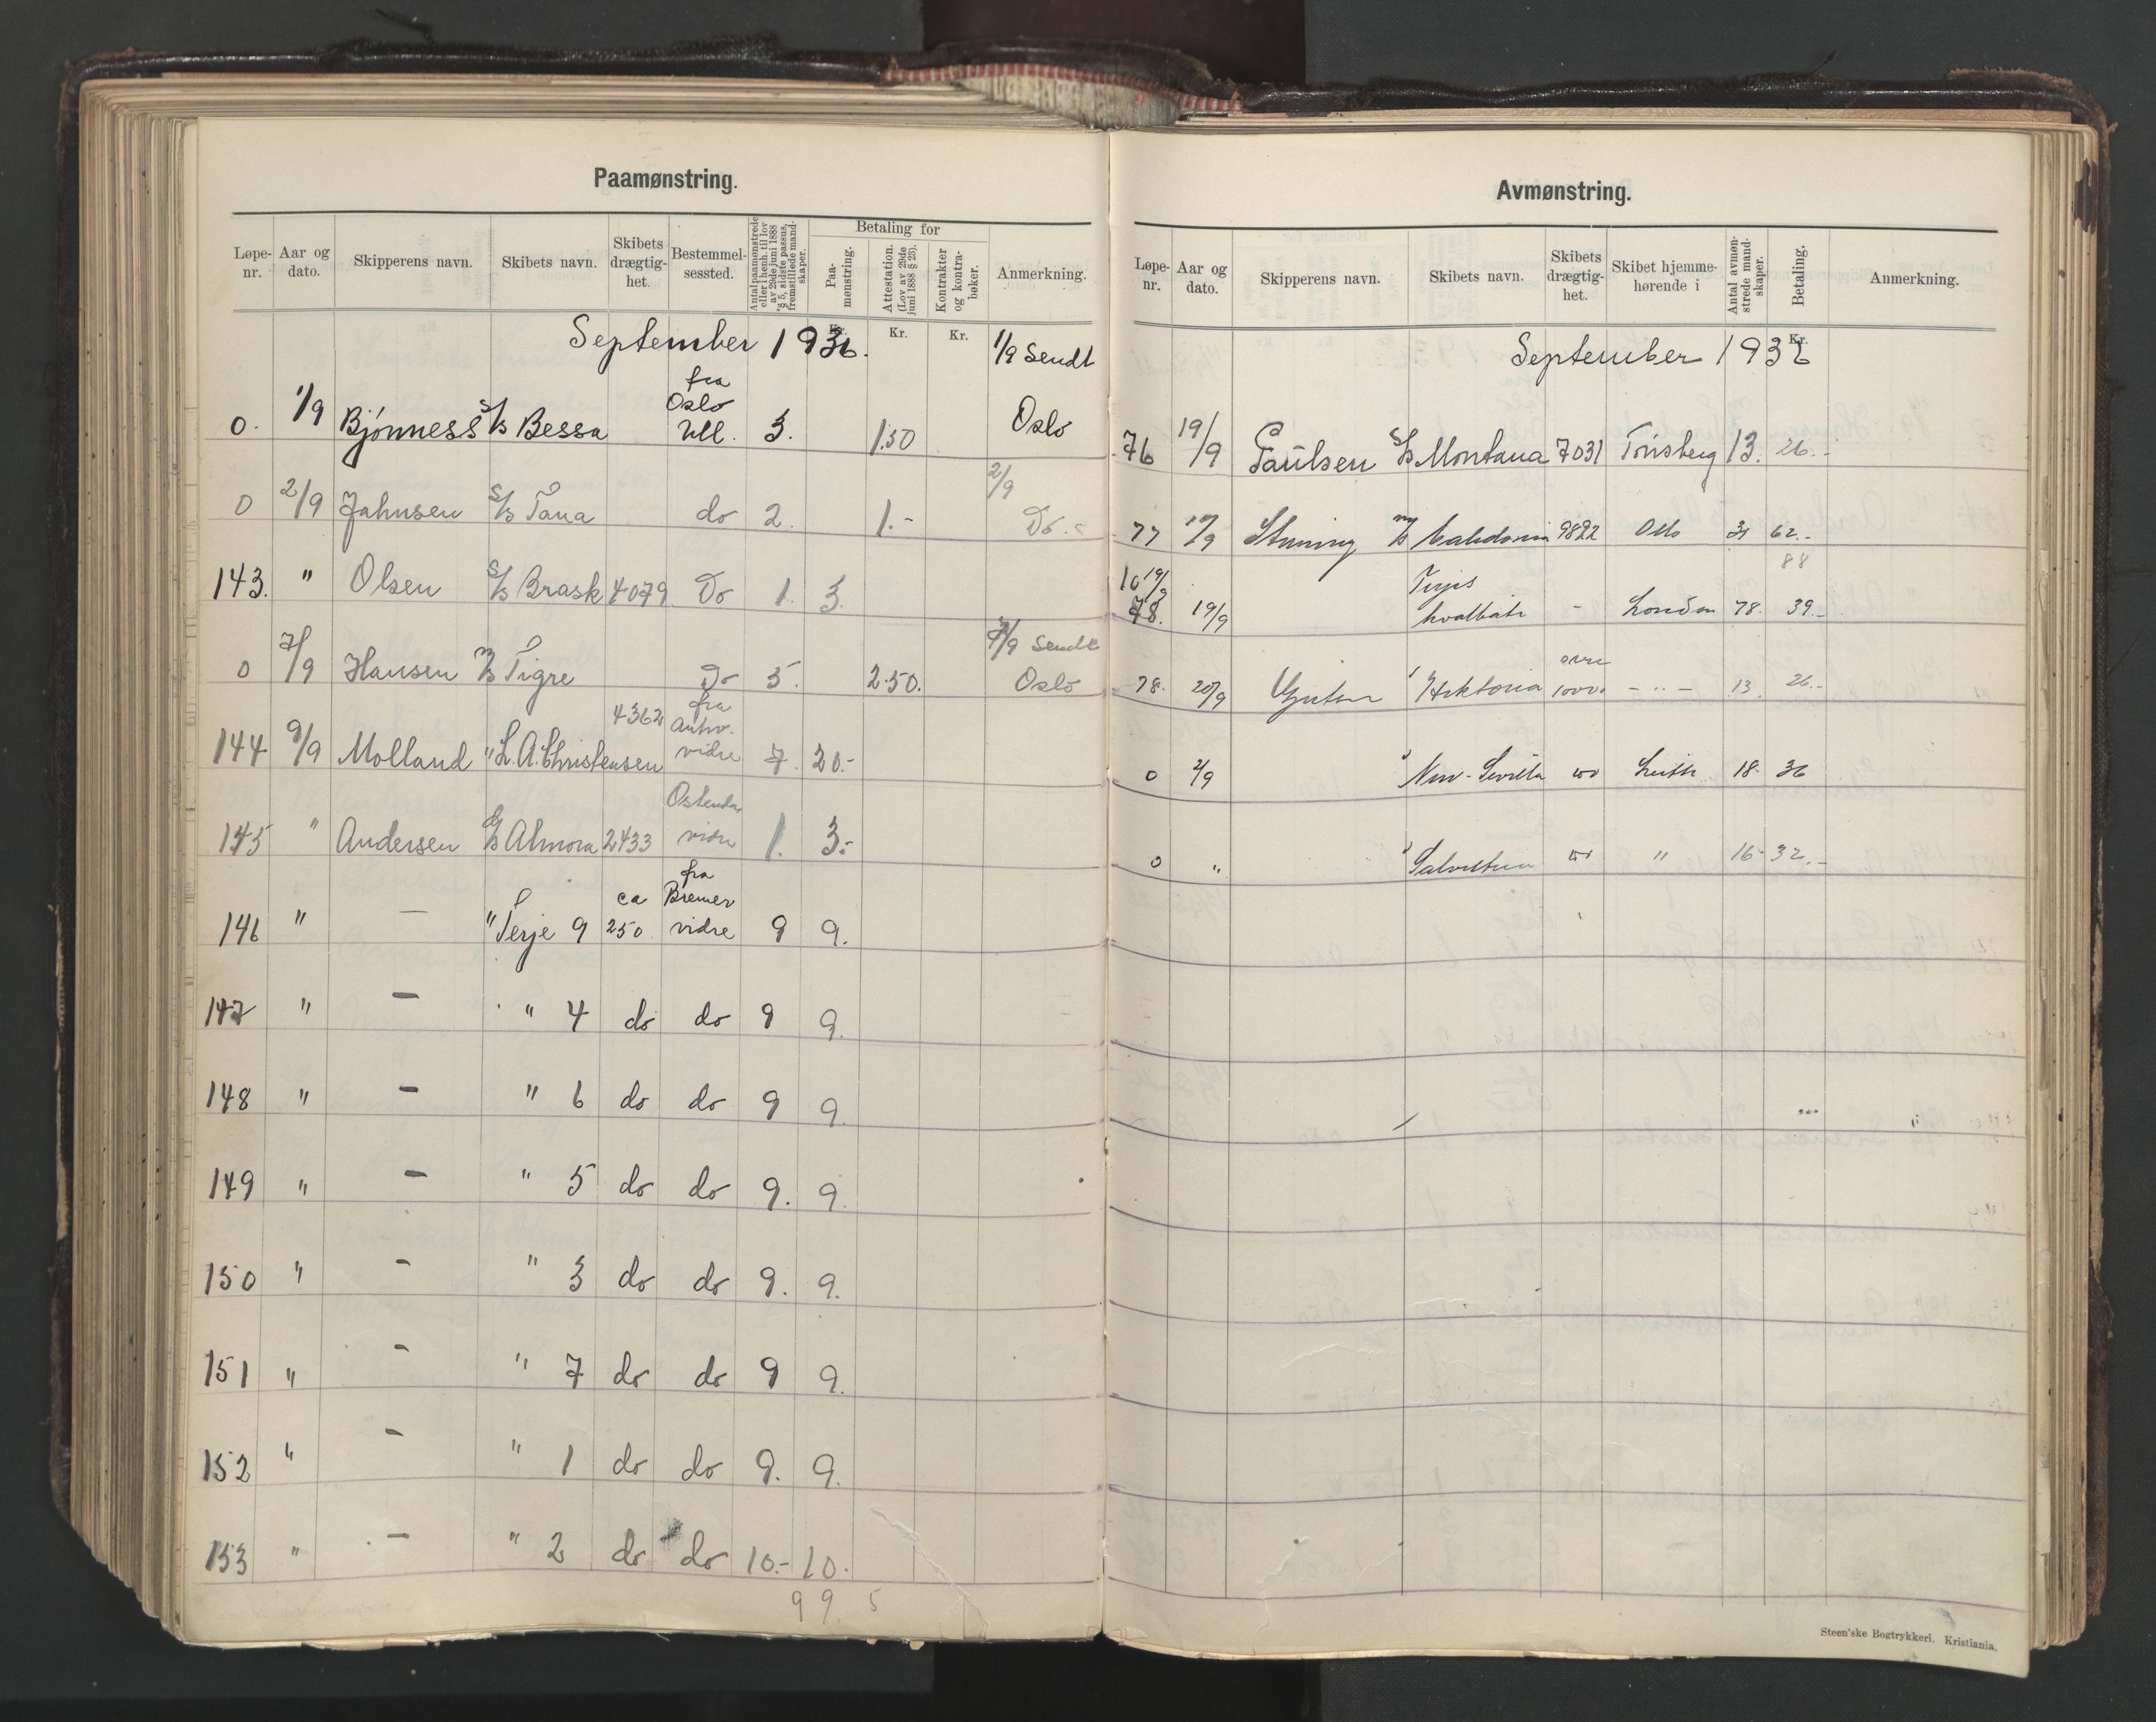 Paamønstring.
Løpe-nr. Aar og dato. Skipperens navn. Skibets navn. Skibets drægtig-het. Bestemmel-sessted. Antal paamønstrede eller i henh. til lov av 29de juni 1888 § 5, sidste passus, fremstillede mand-skaper. Betaling for Paa-mønstring. Attestation. (Lov av 29de juni 1888 § 23). Kontrakter og kontra-bøker. Anmerkning.
Kr. Kr. Kr.
September 1936. 1/9 Sendt
fra
Oslo
0. 1/9 Bjønness S/S Bessa Utl. 3. 1.50 Oslo
2/9
0 2/9 Jahnsen S/S Tana do 2. 1.- Do.
143. " Olsen S/S Brask 4079 Do 1. 3.
7/9 Sendt
0 7/9 Hansen M/S Tigre Do 5. 2.50. Oslo
4362 fra
Antw.
144 9/9 Molland " L.A. Christensen vidre 7. 20.-
Ostende
145 " Andersen S/S Almora 2433 vidre 1. 3.-
fra
ca Bremer
146 " — " Terje 9 250. vidre 9 9.
147 " — " 4 do do 9 9.
148 " — " 6 do do 9 9.
149 " — " 5 do do 9. 9.
150 " - " 3 do do 9. 9.
151 " - " 7 do do 9 9.
152 " - " 1 do do 9. 9.
153 " — " 2 do do 10.- 10.
99. 5
Avmønstring.
Løpe-nr. Aar og dato. Skipperens navn. Skibets navn. Skibets drægtig-het. Skibet hjemme-hørende i Antal avmøn-strede mand-skaper. Betaling. Anmerkning.
Kr.
September 1936
76 19/9 Paulsen S/S Montana 7031 Tønsberg 13. 26.-
77 17/9 M/S 9822 Oslo 31 62.-
88
10 19/9 Terjes
78. 19/9 hvalbåter - London 78. 39.-
over
78. 20/9 " Hektoria 10000 - " - 13. 26.-
0 2/9 " New-Sevilla do Leith 18. 36
0 " " Salvestria do " 16 32.-
Steen'ske Bogtrykkeri. Kristiania.